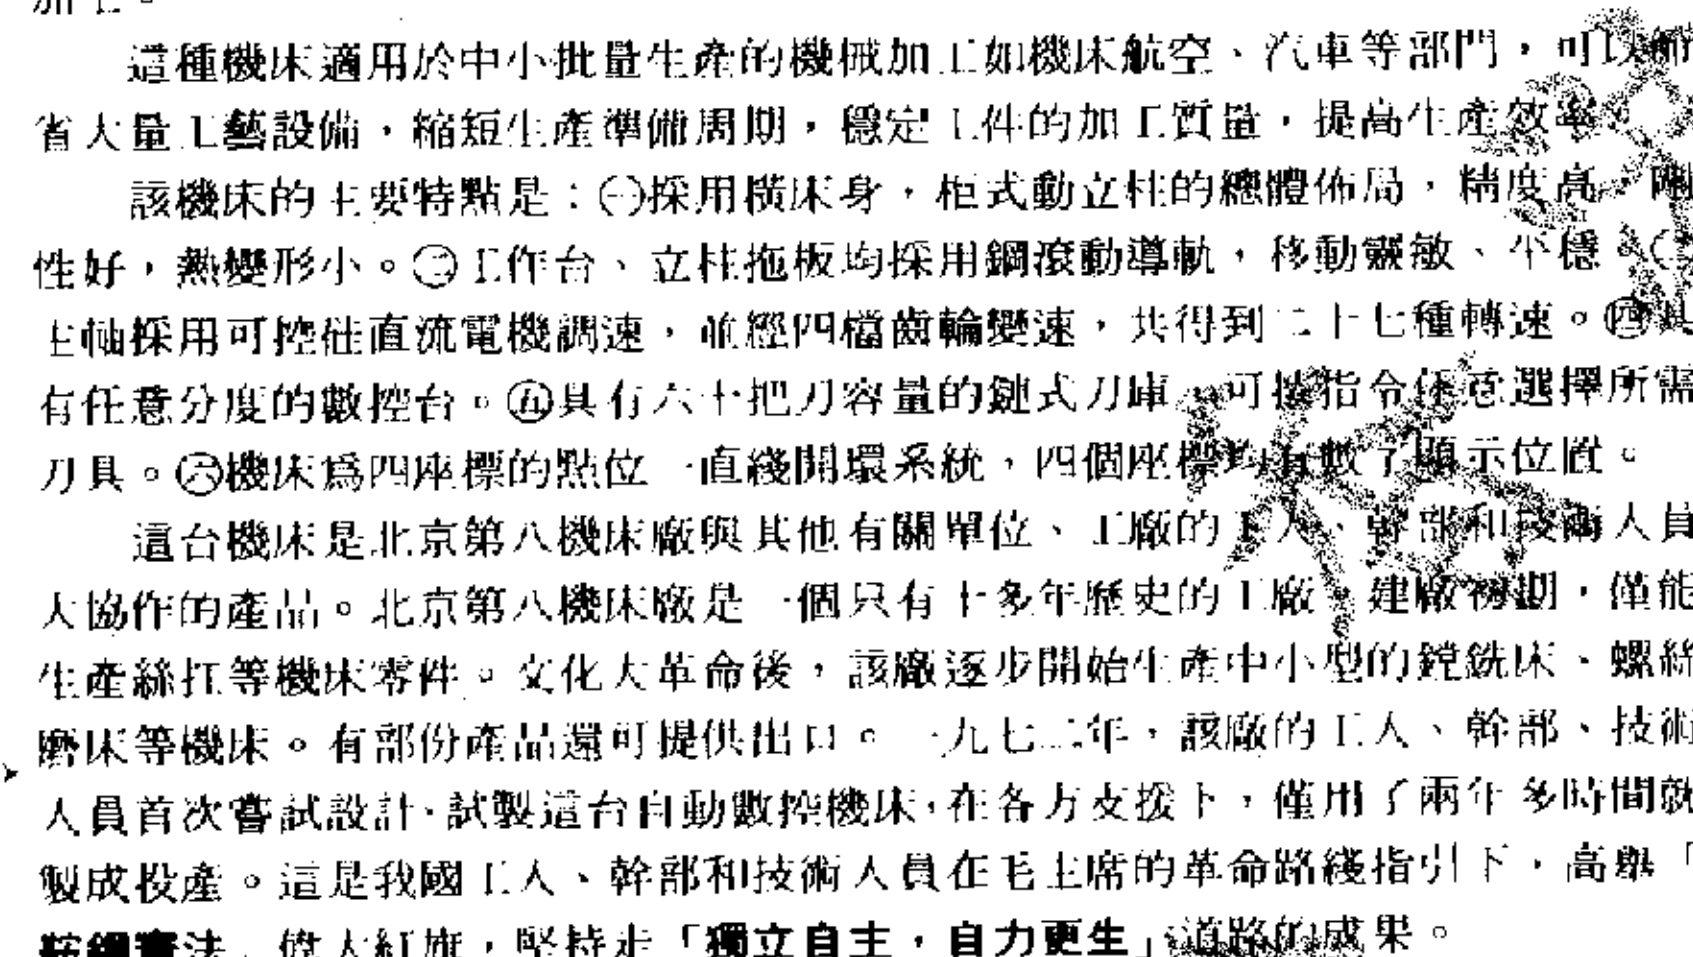 加工。
這種機床適用於中小批量生產的機械加工如機床航空、汽車等部門，可以節
省大量工藝設備，縮短生產準備周期，穩定工件的加工質量，提高生產效率
該機床的主要特點是：㊀採用橫床身，柜式動立柱的總體佈局，精度高，剛
性好，熱變形小。㊁工作台、立柱拖板均採用鋼滾動導軌，移動靈敏、平穩。㊂
主軸採用可控硅直流電機調速，並經四檔齒輪變速，共得到二十七種轉速。㊃具
有任意分度的數控台。㊄具有六十把刀容量的鏈式刀庫，可按指令任意選擇所需
刀具。㊅機床爲四座標的點位一直綫開環系統，四個座標均有數字顯示位置。
這台機床是北京第八機床廠與其他有關單位、工廠的工人、幹部和技術人員
大協作的產品。北京第八機床廠是一個只有十多年歷史的工廠，建廠初期，僅能
生產絲扛等機床零件。文化大革命後，該廠逐步開始生產中小型的鏜銑床、螺絲
磨床等機床。有部份產品還可提供出口。一九七二年，該廠的工人、幹部、技術
人員首次嘗試設計·試製這台自動數控機床，在各方支援下，僅用了兩年多時間就
製成投產。這是我國工人、幹部和技術人員在毛主席的革命路綫指引下，高舉「
鞍鋼憲法」偉大紅旗，堅持走「獨立自主，自力更生」道路的成果。